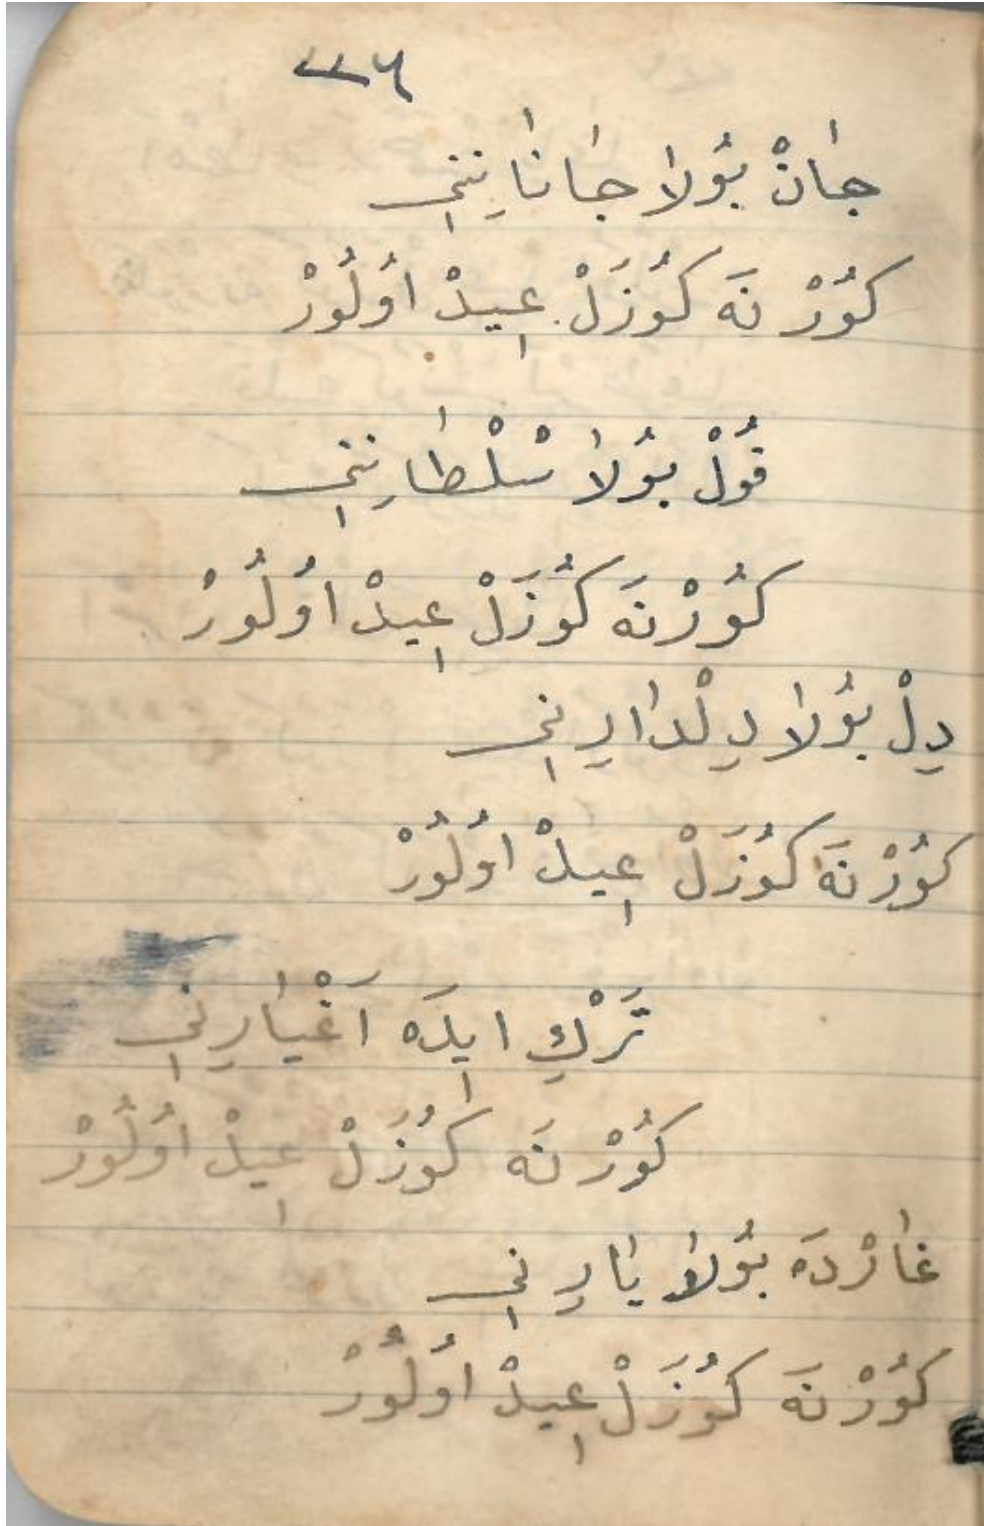 ٢٢٦
جٰانْ بُولٰا جٰانٰانِنِى
كُورْ نَه كُوزَلْ عِيدْ اوُلُورْ
قُولْ بُولٰا سْلْطٰانِنِى
كُورْ نَه كُوزَلْ عِيدْ اوُلُورْ
دِلْ بُولٰا دِلْدٰارِنِى
كُورْ نَه كُوزَلْ عِيدْ اوُلُورْ
تَرْكِ ايدَه اَغْيٰارِنِى
كُورْ نَه كُوزَلْ عِيدْ اوُلُورْ
غٰارْدَه بُولٰا يٰارِنِى
كُورْ نَه كُوزَلْ عِيدْ اوُلُورْ